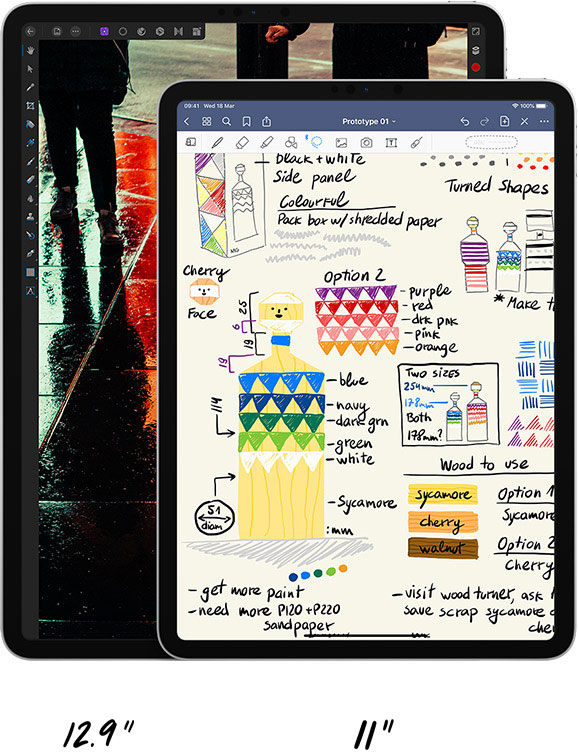 09:41 Wed 18 Mar
100%
Prototype 01
black + white
Side panel
Colourful
Pack box w/ shredded paper
Turned Shapes
Cherry
Face
Option 2
purple
red
drk pnk
pink
orange
*Make t
25
6
19
19
114
blue
navy
dark grn
green
white
Sycamore
:mm
51
diam
Two sizes
254mm
178mm
Both
178mm?
Wood to use
sycamore
cherry
walnut
Option 1
Sycamore
Option 2
Cherry
- get more paint
- need more P120 + P220
sandpaper
- visit wood turner, ask
save scrap sycamore
che
12.9"
11"